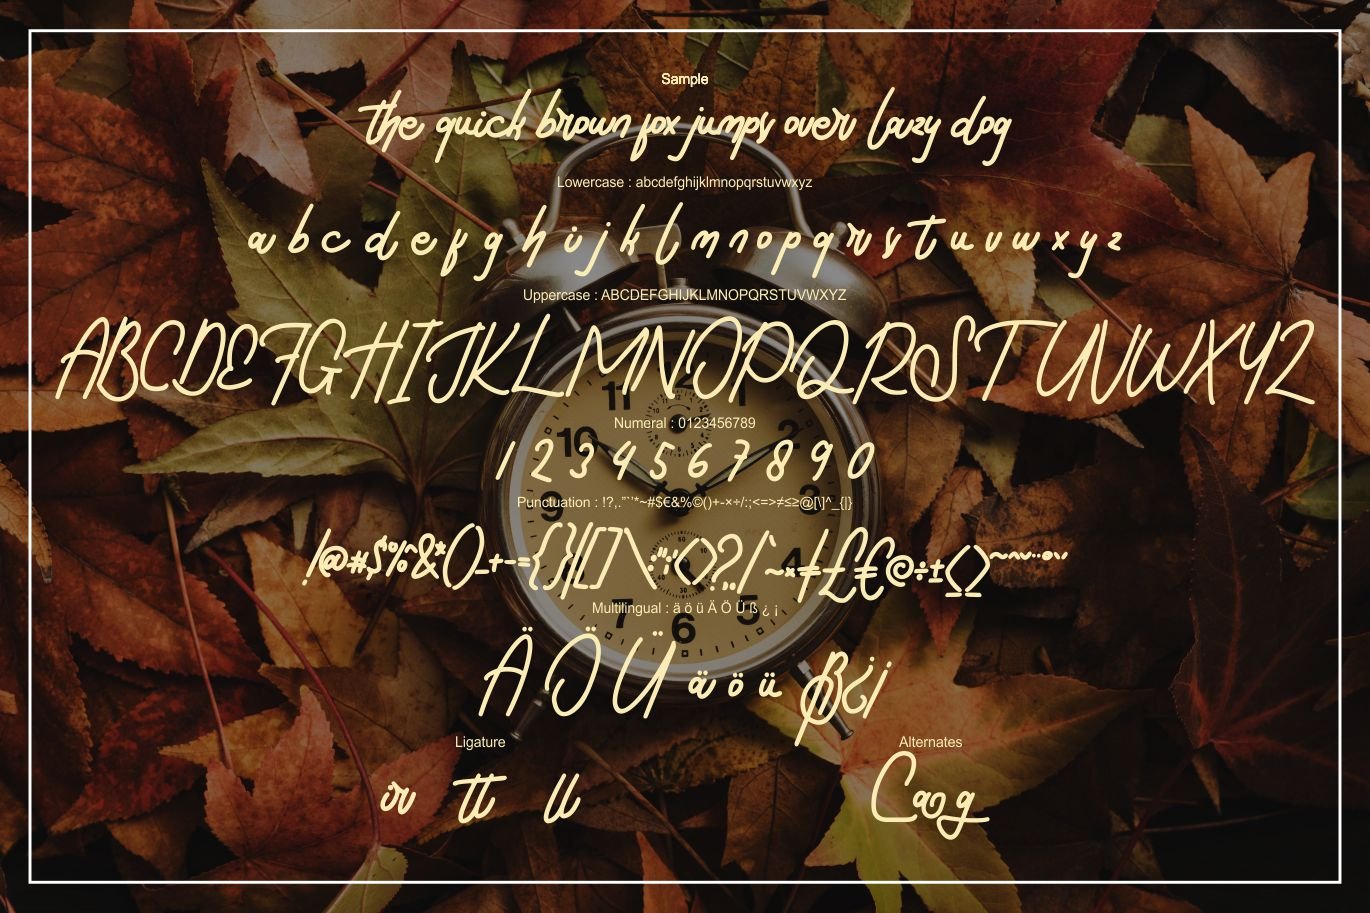 Sample
the quick brown fox jumps over lazy dog
Lowercase : abcdefghijklmnopqrstuvwxyz
a b c d e f g h i j k l m n o p q r s t u v w x y z
Uppercase : ABCDEFGHIJKLMNOPQRSTUVWXYZ
ABCDEFGHIJKLMNOPQRSTUVWXYZ
Numeral : 0123456789
1 2 3 4 5 6 7 8 9 0
Punctuation : !?,.”`’*~#$€&%©()+-×÷/:;<=>≠≤≥@[\]^_{|}
Multilingual : ä ö ü Ä Ö Ü ß ¿ ¡
Ä Ö Ü ä ö ü ß ¿ ¡
Ligature
Alternates
or tt ll
C a g
11 12
10 2
9
4
7 6 5